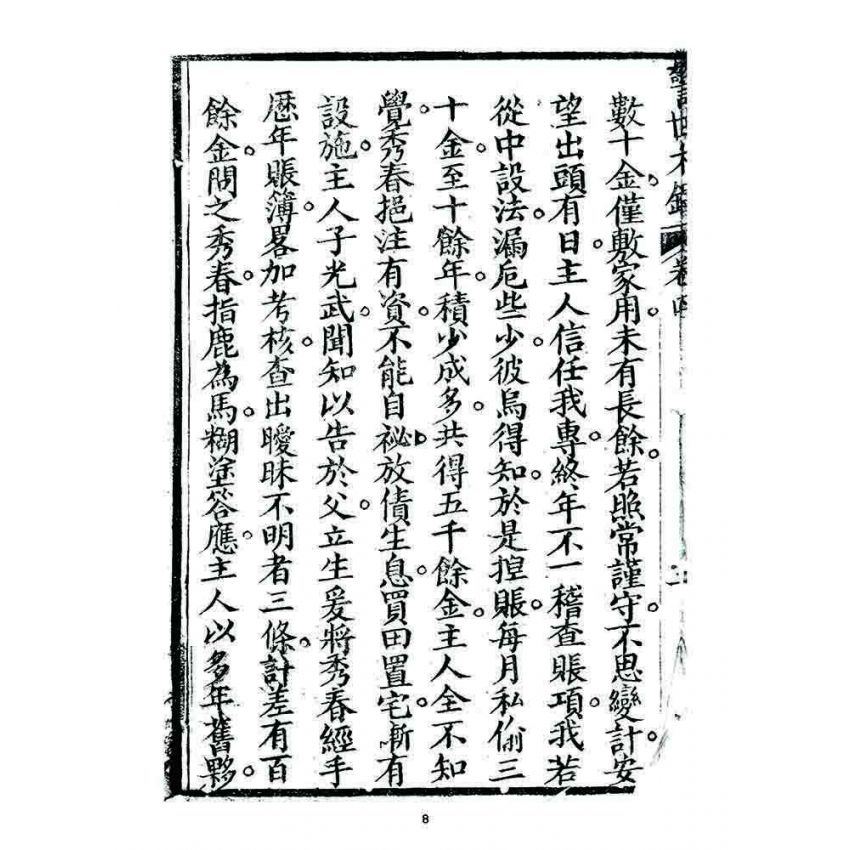 警世木鐸 卷四
數十金。僅敷家用。未有長餘。若照常謹守。不思變計。安
望出頭有日。主人信任我專。終年不一稽查賬項。我若
從中設法。漏卮些少。彼烏得知。於是捏賬。每月私偷三
十金。至十餘年。積少成多。共得五千餘金。主人全不知
覺。秀春挹注有資。不能自祕。放債生息。買田置宅。漸有
設施。主人子光武。聞知以告於父。立生爰將秀春經手
歷年賬簿。畧加考核。查出曖昧不明者三條。計差有百
餘金。問之秀春。指鹿為馬。糊塗答應。主人以多年舊夥。
8